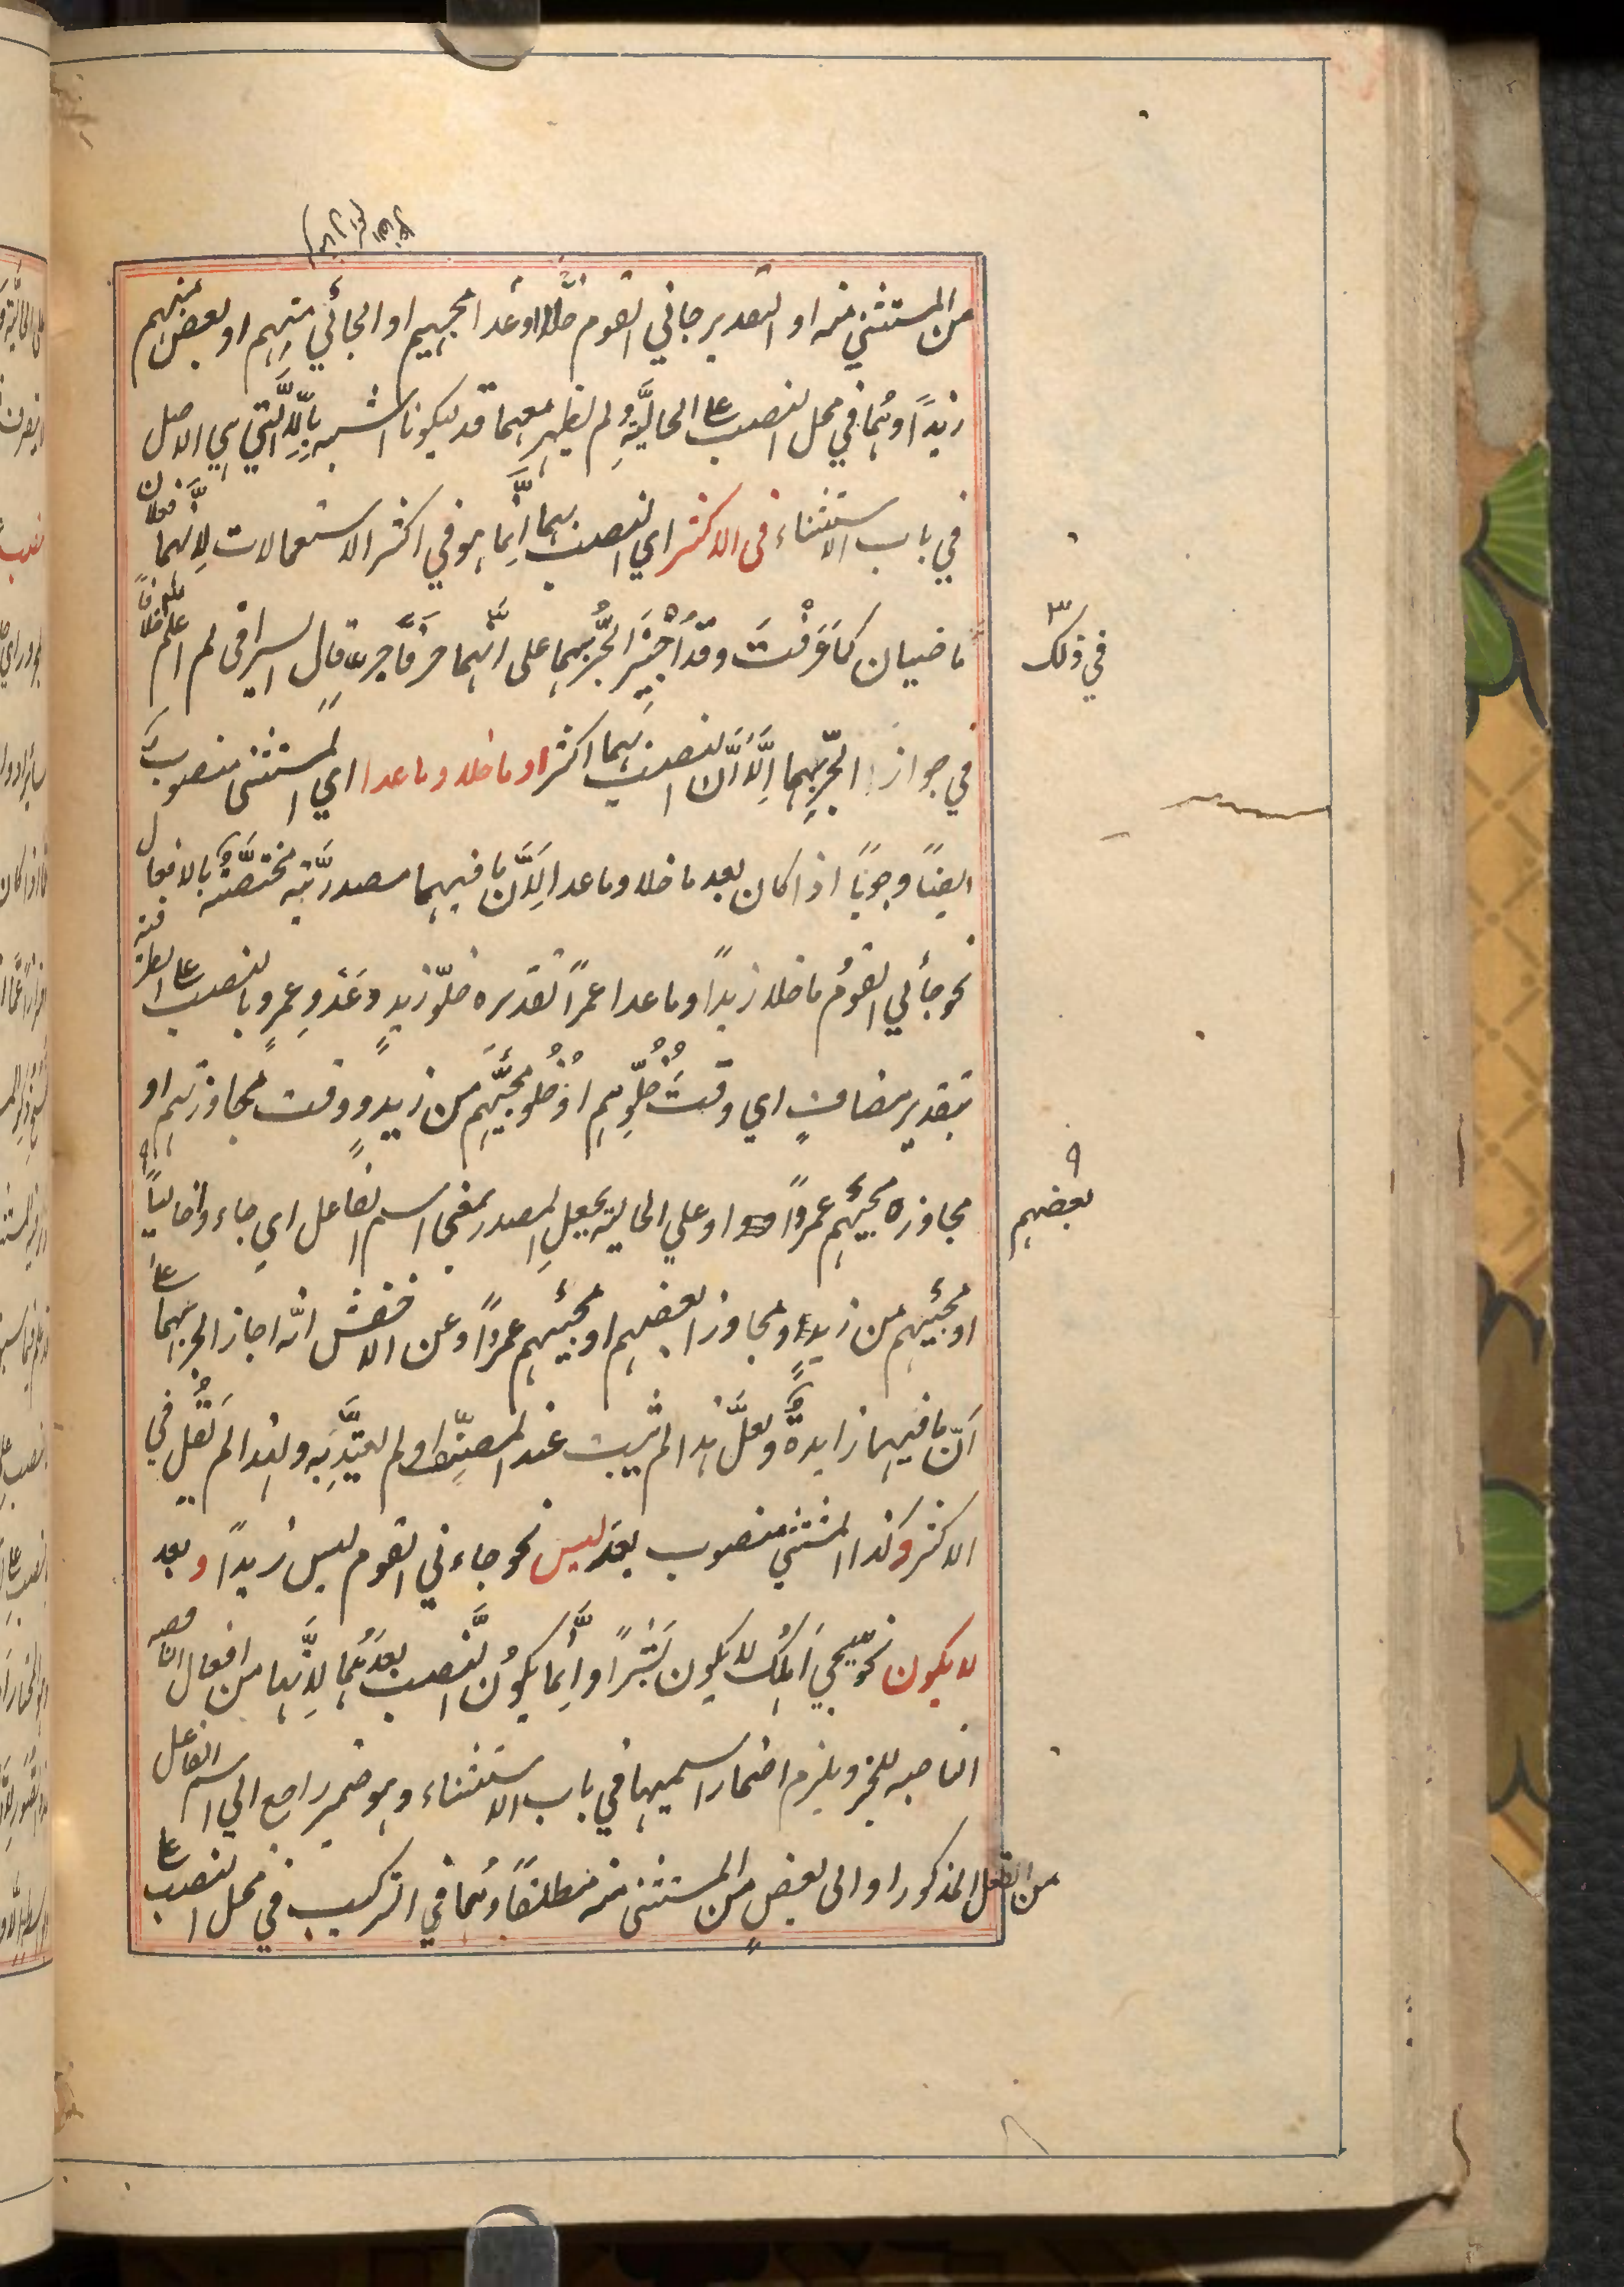 من المستثنى منه او التقدير جائني القوم خلا او عدا مجيهم او الجائي منهم او بعض منهم
زيدًا وهما في محل النصب على الحاليَّةِ ولم يظهر معهما قد ليكونا اشبه بِاِلَّا الَّتي هي الاصل
في باب الاستثناء فى الاكثر اي النصب بهما اِنَّما هو في اكثر الاستعمالات لِاَنَّهما فعلان
ماضيان كما عَرَفْتَ وقد اُجِيْزَ الجَرُّ بهما على انَّهما حرفا جرٍّ قال السيرافى لم اعلم خلافًا
في ذلك
في جواز الجَرِّ بهما اِلَّا اَنَّ النصب بهما اكثر او ما خلا وما عدا اي المستثنى منصوب
ايضًا وجوبًا اذا كان بعد ما خلا وما عدا لِاَنَّ ما فيهما مصدريَّة مختصَّةٌ بالافعال
نحو جائني القومُ ما خلا زيدًا وما عدا عمرًا تقديره خلوّ زيدٍ وعَدْوِ عمرٍو بالنصب على الظرفية
بتقدير مضافٍ اي وقتَ خُلُوِّهم او خُلُوِّ مجيئَهم من زيدٍ ووقت مجاوزتهم او
مجاوزه مجيئهم عمروًا او على الحالية بجعلِ المصدر بمعنى اسم الفاعل اي جاءوا خاليًا
بعضهم
او مجيئهم من زيدٍ ومجاوزا بعضهم او مجيئهم عمروًا وعن الاخفش انَّه اجاز الجر بهما على
اَنّ ما فيهما زايدةٌ ولعلَّ هذا لم يثبت عند المصنِّف او لم يعتدَّ به ولهذا لم يقل في
الاكثر وكذا المستثنى منصوب بعد ليس نحو جاءني القوم ليس زيدًا وبعد
لا يكون نحو يجيئ اهلك لا يكون بَشَرًا واِنَّما يكونُ النَّصب بعدَهُما لِاَنَّهما من افعال الناقصه
الناصبه للخبر ويلزم اضمار اسميهما في باب الاستثناء وهو ضمير راجع الى اسم الفاعل
من الفعل المذكور او الى بعضٍ من المستثنى منه مطلقًا وهُما في التركيب في محل النصب على